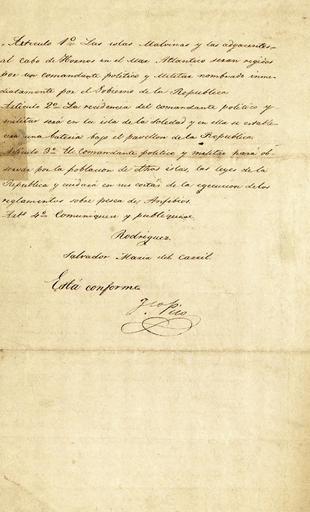 Artículo 1º Las islas Malvinas y las adyacentes
al Cabo de Hornos en el Mar Atlantico seran regidas
por un comandante politico y Militar nombrado inme-
diatamente por el Gobierno de la Republica
Articulo 2º La residencia del comandante politico y
militar será en la isla de la Soledad y en ella se estable-
cera una bateria bajo el pavellon de la Republica
Articulo 3º El Comandante politico y militar hará ob-
servar por la poblacion de dchas islas, las leyes de la
Republica y cuidará en sus costas de la ejecucion de los
reglamentos sobre pesca de Anfibios.
Artº 4º Comuniquese y publiquese.
Rodriguez
Salvador Maria del Carril
Está conforme
Pico